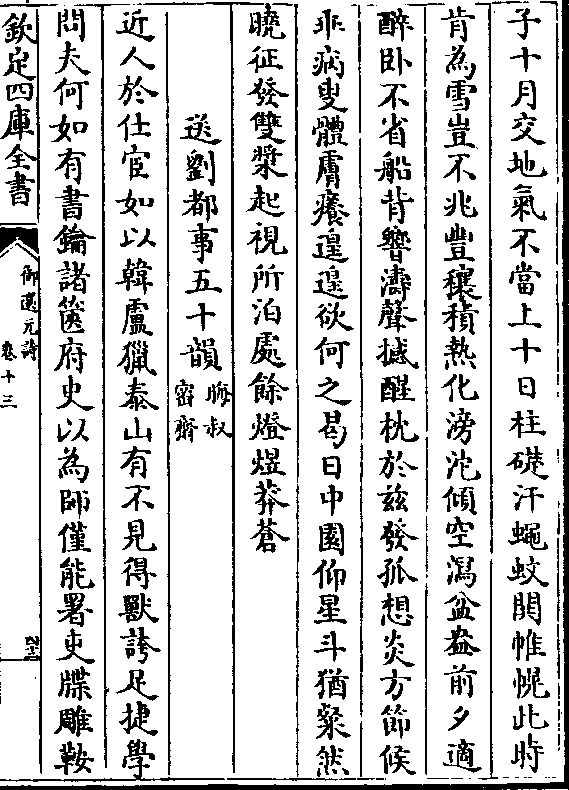 子十月交地氣不當上十日柱礎汗蠅蚊閙帷幌此時
肯為雪豈不兆豐穰積熱化滂沱傾空瀉盆盎前夕適
醉卧不省船背響濤聲撼醒枕於兹發孤想炎方節候
乖病叟體膚癢遑遑欲何之曷日中園仰星斗猶粲然
曉征發雙槳起視所泊處餘燈煜莽蒼
送劉都事五十韻
晦叔
密齋
近人於仕宦如以韓盧獵泰山有不見得獸誇足捷學
問夫何如有書鑰諸篋府史以為師僅能署吏牒雕鞍
欽定四庫全書
御選元詩
卷十三